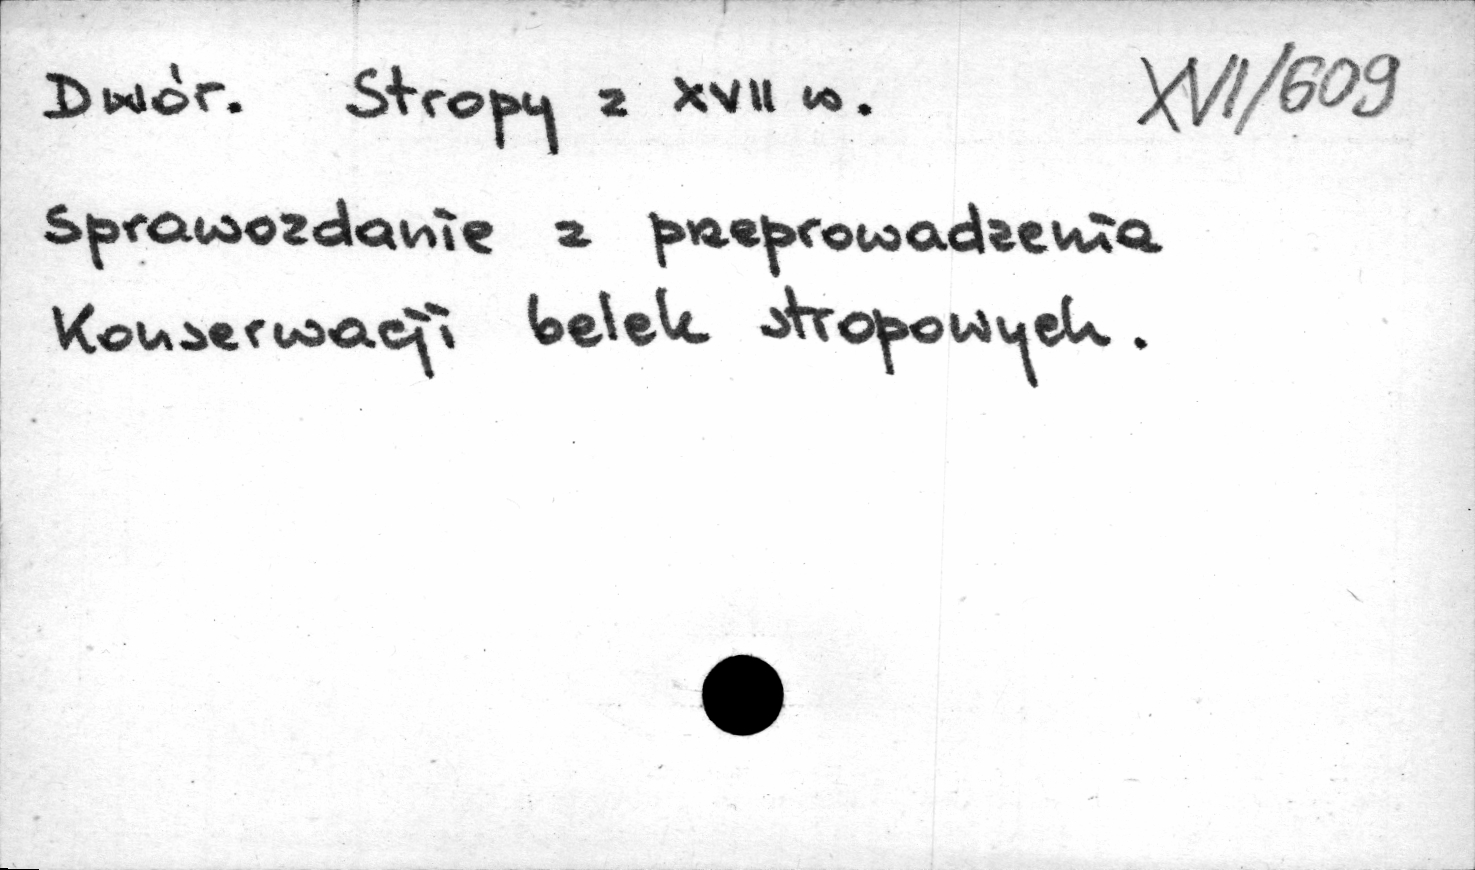 Dwór. Stropy z XVII w. XVI/609
Sprawozdanie z przeprowadzenia
Konserwacji belek stropowych.